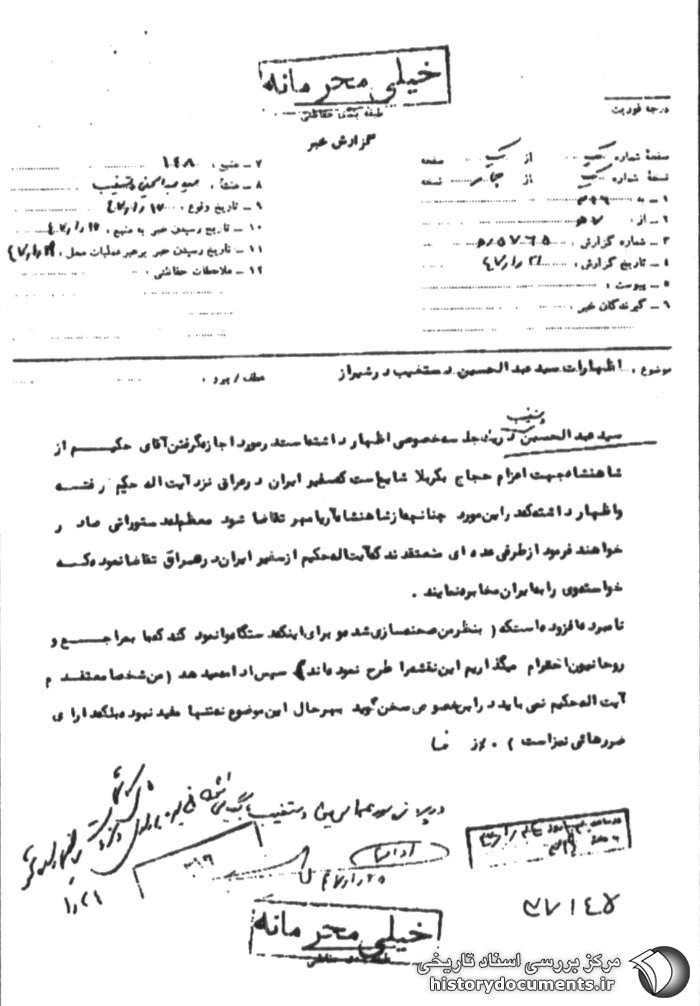 خیلی محرمانه
طبقه بندی حفاظتی
درجه فوریت
گزارش خبر
صفحه شماره یک از یک صفحه
نسخه شماره یک از چهار نسخه
۱ـ به : ۳۱۶
۲ـ از :
۳ـ شماره گزارش :
۴ـ تاریخ گزارش : ۴۷/۱/۲۱
۵ـ پیوست :
۶ـ گیرندگان خبر :
۷ـ منبع : ۱۴۸
۸ـ منشأ : سید عبدالحسین دستغیب
۹ـ تاریخ وقوع : ۴۷/۱/۱۷
۱۰ـ تاریخ رسیدن خبر به منبع : ۴۷/۱/۱۷
۱۱ـ تاریخ رسیدن خبر برهبر عملیات محل :
۱۲ـ ملاحظات حفاظتی :
موضوع : اظهارات سید عبدالحسین دستغیب در شیراز
عطف / پیرو :
دستغیب
سید عبدالحسین در یک جلسه خصوصی اظهار داشته است در مورد اجازه گرفتن آقای حکیم از
شاهنشاه جهت اعزام حجاج بکربلا شایع است که سفیر ایران در عراق نزد آیت اله حکیم رفته
و اظهار داشته که در این مورد چنانچه از شاهنشاه آریامهر تقاضا شود معظم له دستوراتی صادر
خواهند فرمود از طرفی عده ای معتقدند که آیت اله حکیم از سفیر ایران در عراق تقاضا نموده که
خواسته وی را به ایران مخابره نمایند .
نامبرده افزوده است که ( بنظر من صحنه سازی شده و برای اینکه دستگاه وانمود کند که ما به مراجع و
روحانیون احترام میگذاریم این نقشه را طرح نموده اند ) سپس ادامه میدهد ( من شخصا معتقدم
آیت اله حکیم نمی باید در این خصوص سخن گوید بهر حال این موضوع نه تنها مفید نبوده بلکه دارای
ضررهائی نیز است )
۳۱۶
خیلی محرمانه
طبقه بندی حفاظتی
مرکز بررسی اسناد تاریخی
historydocuments.ir